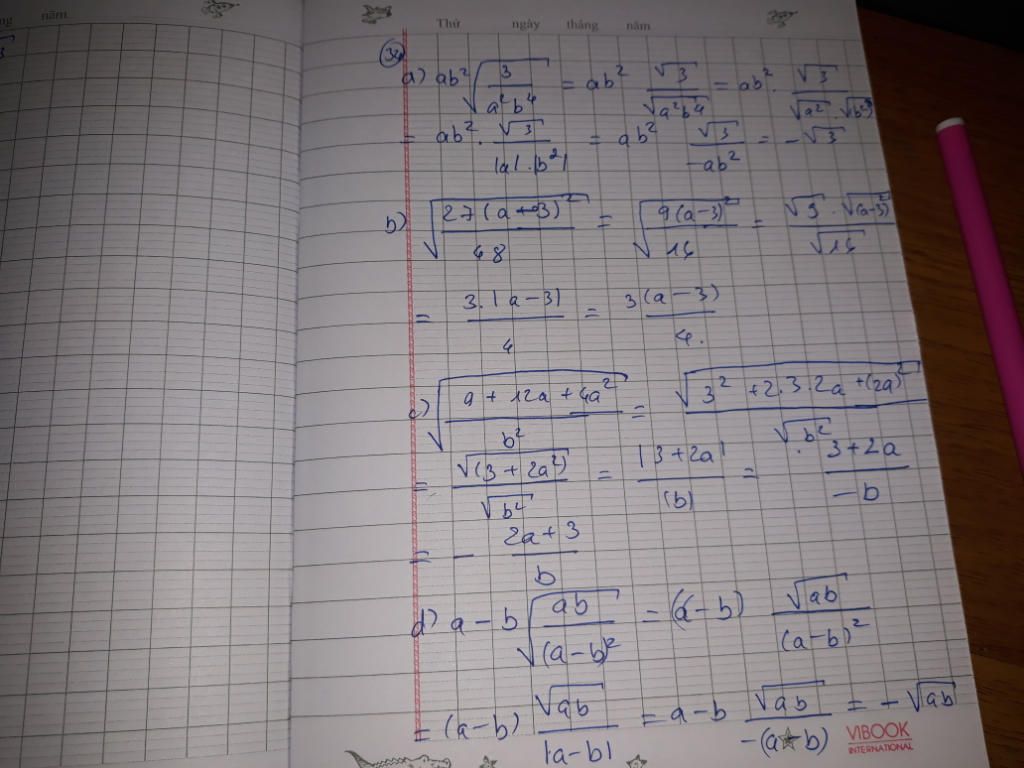 năm
Thứ ngày tháng năm
34
a) ab² √(3/(a²b⁴)) = ab² √3/√(a²b⁴) = ab² · √3/(√a² · √b⁴)
= ab² · √3/(|a|·|b²|) = ab² √3/(-ab²) = -√3
b) √(27(a-3)²/48) = √(9(a-3)²/16) = √9 · √(a-3)²/√16
= 3.|a-3|/4 = 3(a-3)/4.
c) √((9+12a+4a²)/b²) = √(3²+2.3.2a+(2a)²)/√b²
= √(3+2a²)/√b² = |3+2a|/(b) = 3+2a/-b
= - 2a+3/b
d) a-b √(ab/√(a-b)²) = (a-b) √ab/(a-b)²
= (a-b) √ab/|a-b| = a-b √ab/-(a-b) = -√ab
VIBOOK
INTERNATIONAL